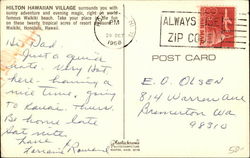 HILTON HAWAIIAN VILLAGE surrounds you with
sunny adventure and evening magic, right on world-
famous Waikiki beach. Take your place in the fun
on these twenty tropical acres of resort
Waikiki, Honolulu, Hawaii.
Hi Dad
Just a quick
note. Very Hot
here. Having a
nice time, going
to Kauai Thurs
Be home late
Sat nite.
Love
PM
28 OCT
1968
ALWAYS USE
ZIP CODE
POST CARD
E.O. OLSEN
814 Warren Ave
Bremerton Wa
98310